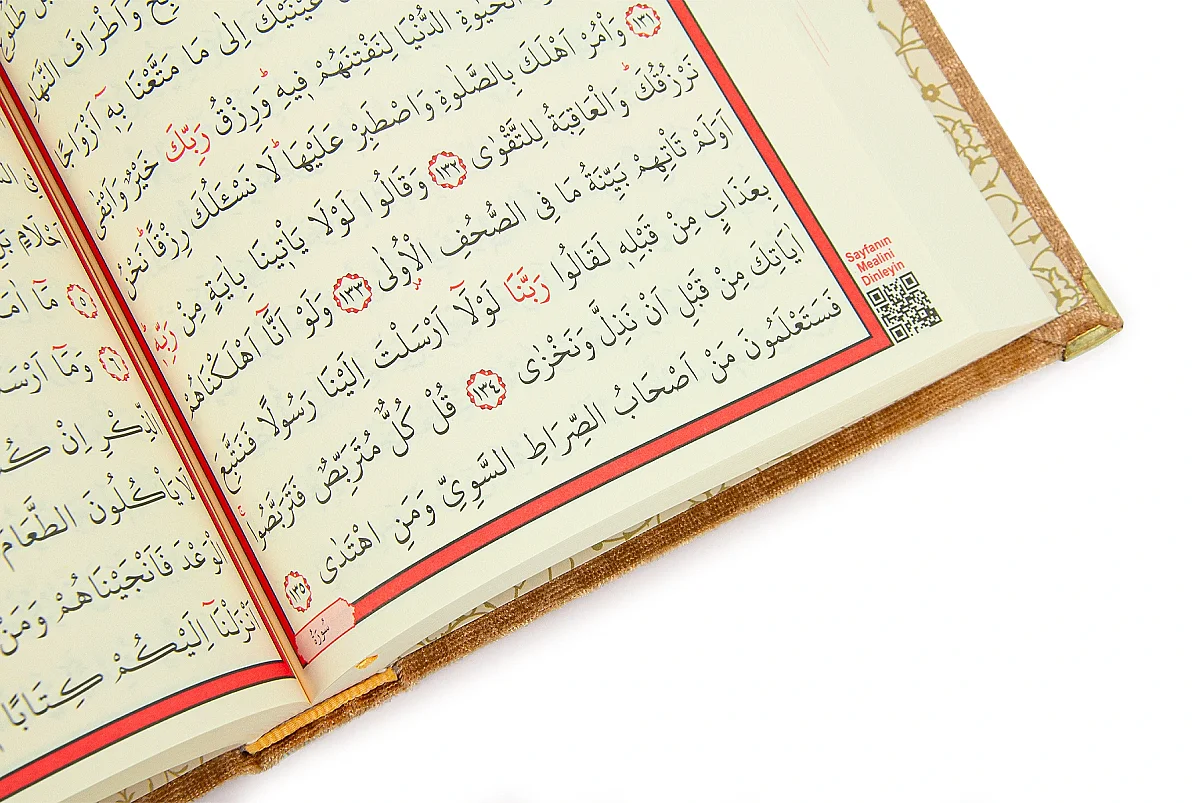 وَاَطْرَافَ النَّهَارِ
عَيْنَيْكَ اِلٰى مَا مَتَّعْنَا بِهٖٓ اَزْوَاجًا
الْحَيٰوةِ الدُّنْيَا لِنَفْتِنَهُمْ فٖيهِ وَرِزْقُ رَبِّكَ خَيْرٌ وَاَبْقٰى
١٣١ وَاْمُرْ اَهْلَكَ بِالصَّلٰوةِ وَاصْطَبِرْ عَلَيْهَا لَا نَسْـَٔلُكَ رِزْقًا نَحْنُ
نَرْزُقُكَ وَالْعَاقِبَةُ لِلتَّقْوٰى ١٣٢ وَقَالُوا لَوْلَا يَاْتٖينَا بِاٰيَةٍ مِنْ رَبِّهٖ
اَوَلَمْ تَاْتِهِمْ بَيِّنَةُ مَا فِى الصُّحُفِ الْاُولٰى ١٣٣ وَلَوْ اَنَّٓا اَهْلَكْنَاهُمْ
بِعَذَابٍ مِنْ قَبْلِهٖ لَقَالُوا رَبَّنَا لَوْلَٓا اَرْسَلْتَ اِلَيْنَا رَسُولًا فَنَتَّبِعَ
اٰيَاتِكَ مِنْ قَبْلِ اَنْ نَذِلَّ وَنَخْزٰى ١٣٤ قُلْ كُلٌّ مُتَرَبِّصٌ فَتَرَبَّصُوا
فَسَتَعْلَمُونَ مَنْ اَصْحَابُ الصِّرَاطِ السَّوِىِّ وَمَنِ اهْتَدٰى ١٣٥
سُورَةُ
Sayfanın
Mealini
Dinleyin
اَحْلَامٍ بَلِ
٥ مَٓا
٦ وَمَٓا
الذِّكْرِ اِنْ
لَا يَاْكُلُونَ الطَّعَامَ
الْوَعْدَ فَاَنْجَيْنَاهُمْ وَمَنْ
اَنْزَلْنَٓا اِلَيْكُمْ كِتَابًا